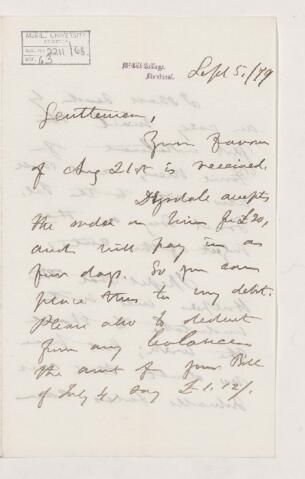 McGILL UNIVERSITY
ACC. NO. 2211/68
REF. 63
McGill College,
Montreal.
Sept 5./79
Gentlemen,
Your favour
of Aug 21st is received.
Drysdale accepts
the order on him for £20,
and will pay in a
few days. So you can
place this to my debit.
Please also to deduct
from any balances
the amt of your Bill
of July 4 say £1.12/.